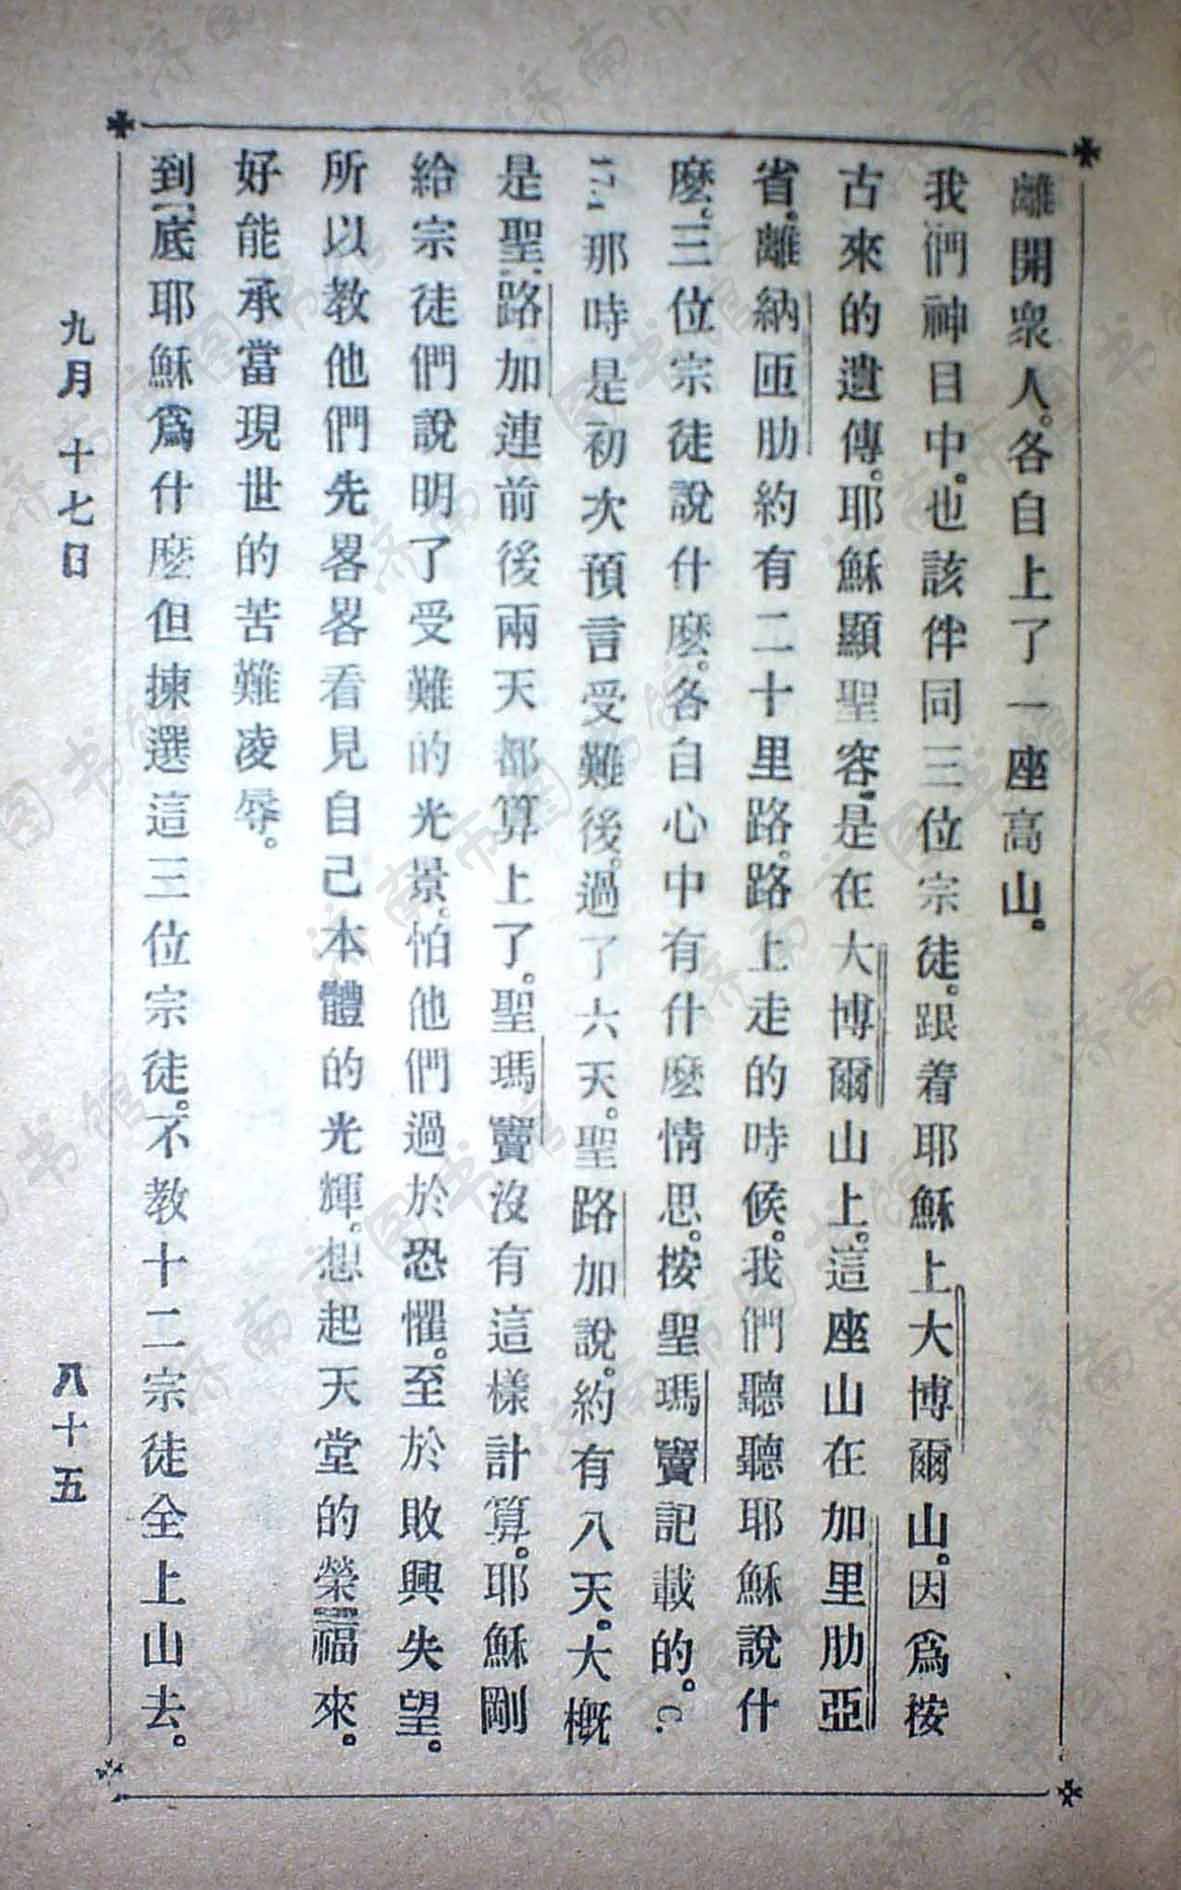 離開衆人。各自上了一座高山。
我們神目中。也該伴同三位宗徒。跟着耶穌上大博爾山。因爲按
古來的遺傳。耶穌顯聖容。是在大博爾山上。這座山在加里肋亞
省。離納匝肋約有二十里路。路上走的時候。我們聽聽耶穌說什
麽。三位宗徒說什麽。各自心中有什麽情思。按聖瑪竇記載的。C.
17.。那時是初次預言受難後。過了六天。聖路加說。約有八天。大槪
是聖路加連前後兩天都算上了。聖瑪竇沒有這樣計算。耶穌剛
給宗徒們說明了受難的光景。怕他們過於恐懼。至於敗興失望。
所以教他們先畧畧看見自己本體的光輝。想起天堂的榮福來。
好能承當現世的苦難凌辱。
到底耶穌爲什麽但揀選這三位宗徒。不教十二宗徒全上山去。
九月十七日
八十五
济南市图书馆